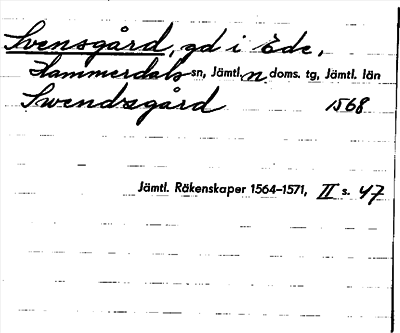 Svensgård, gd i Ede,
Hammerdals sn, Jämtl. n. doms. tg, Jämtl. län
Swendzgård 1568
Jämtl. Räkenskaper 1564–1571, II s. 47